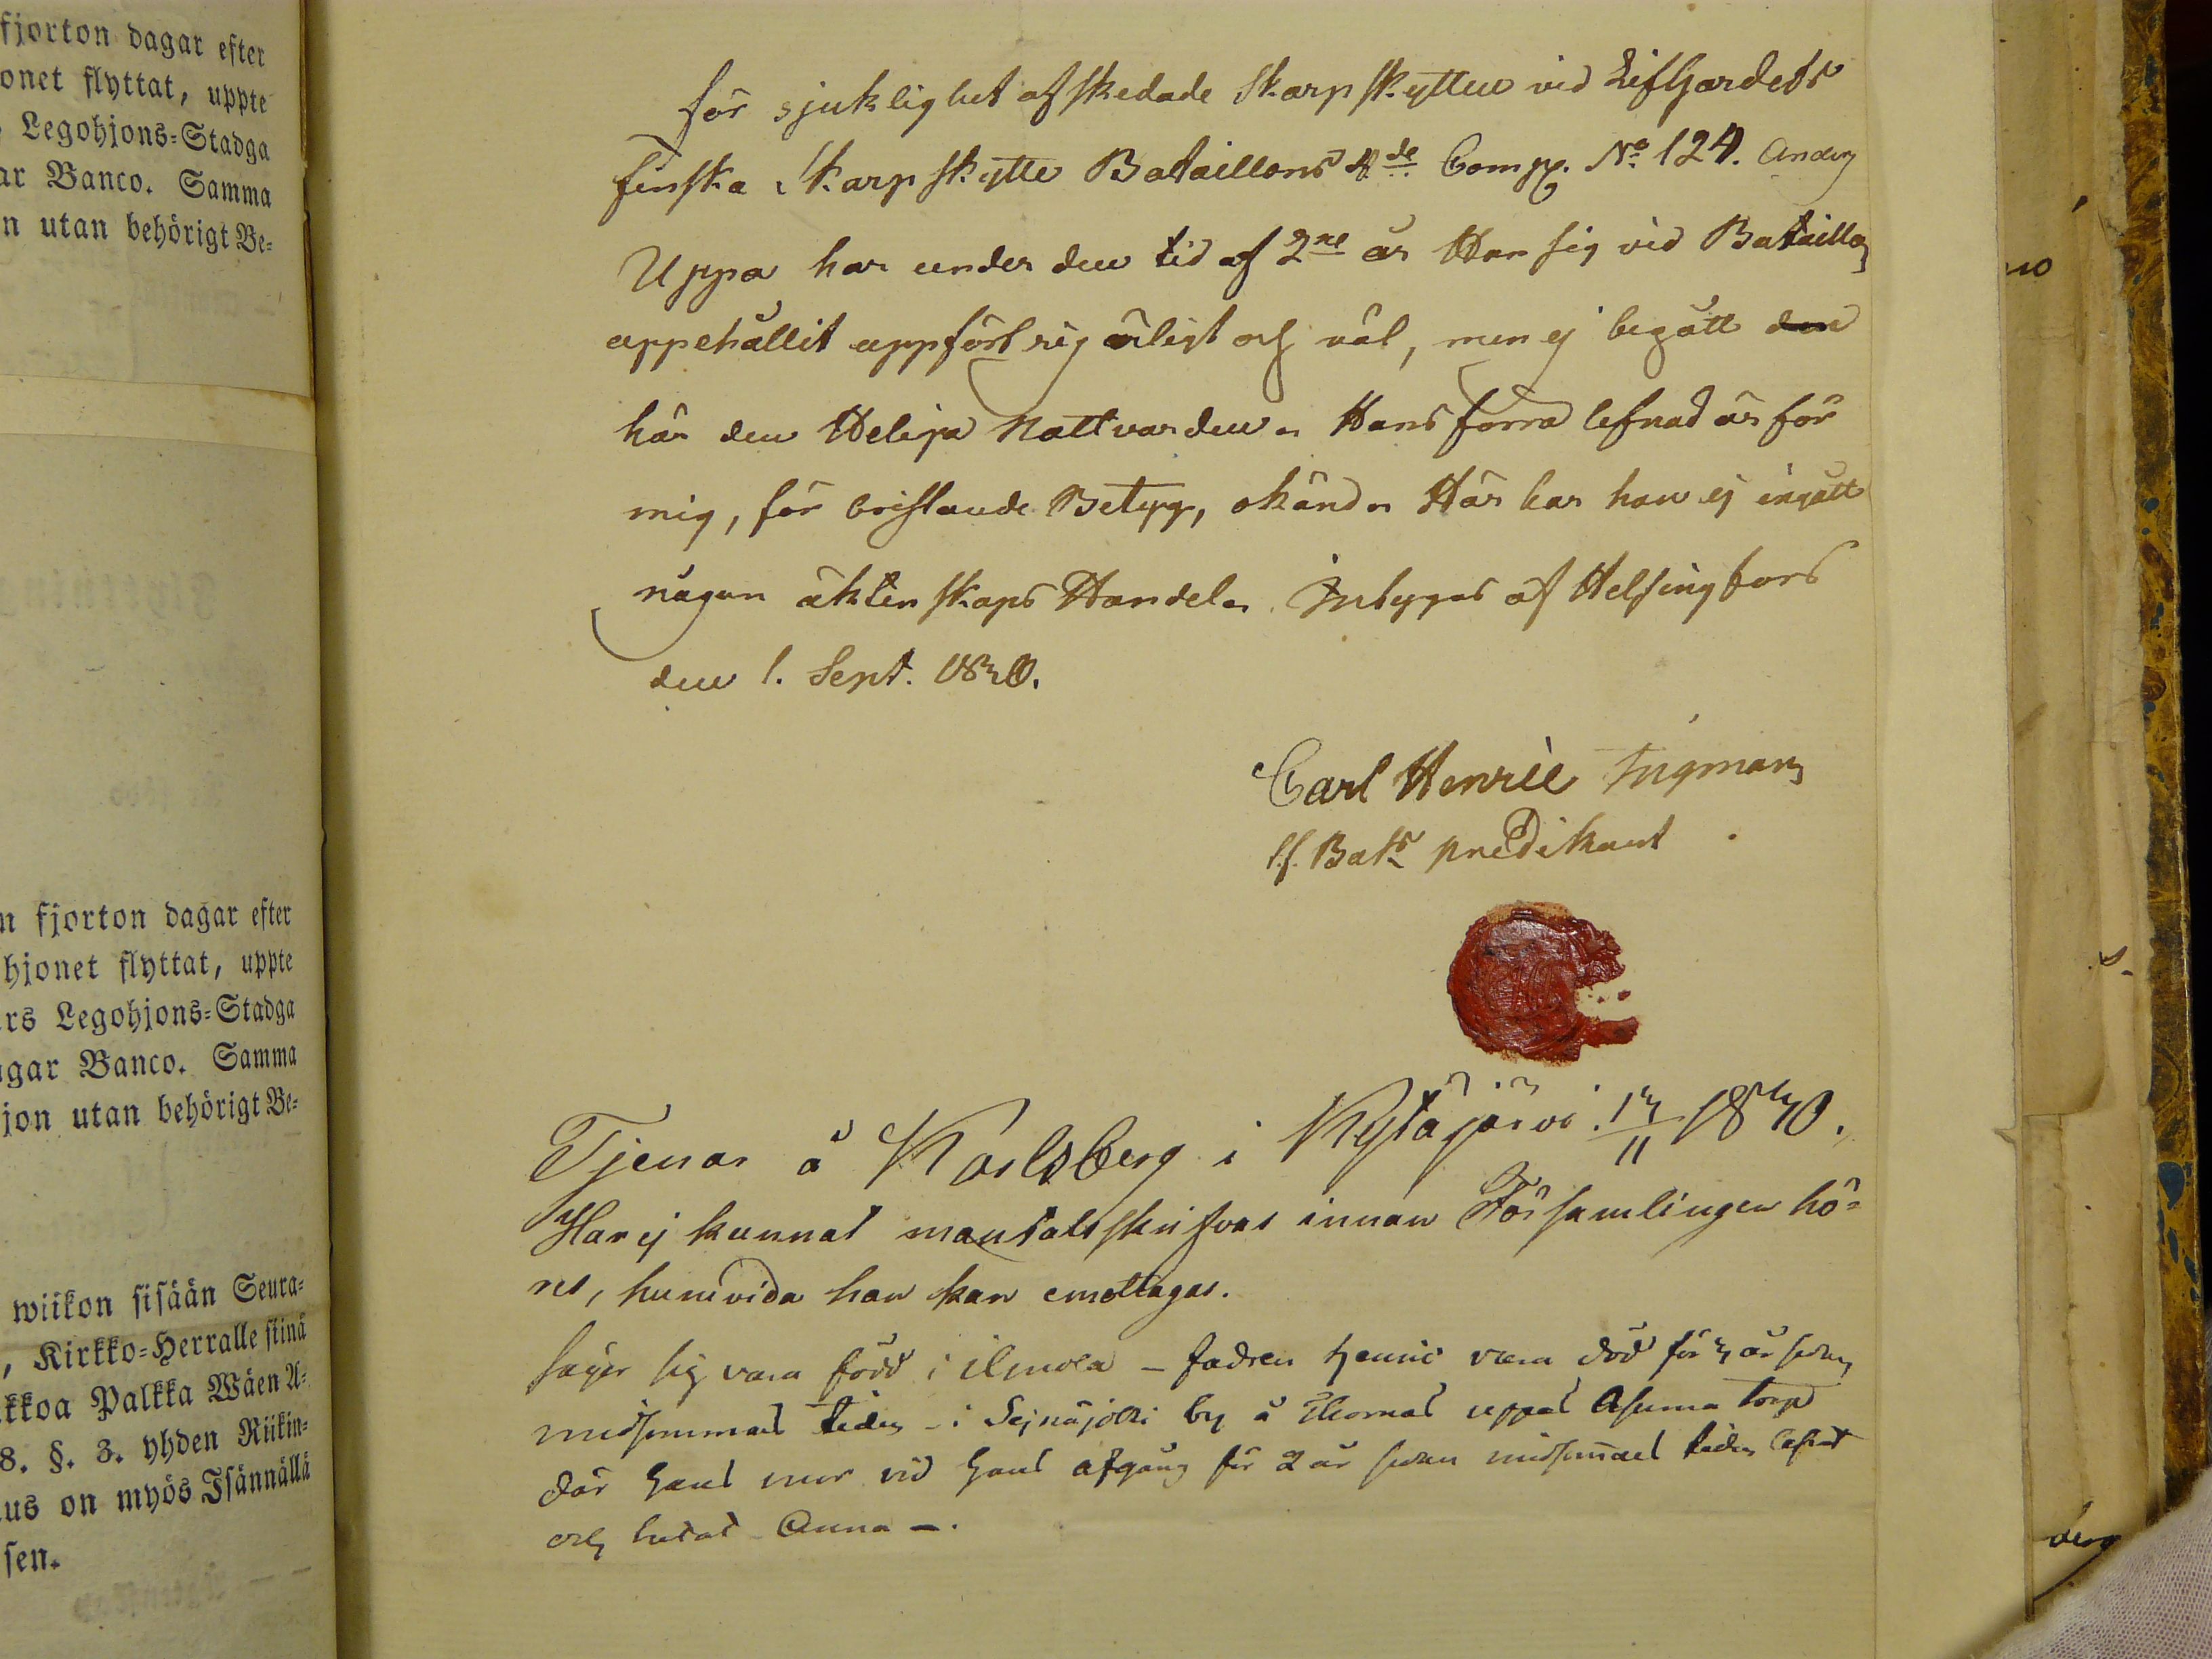 fjorton dagar efter
onet flyttat, uppte
Legohjons-Stadga
ar Banco. Samma
n utan behörigt Be-
n fjorton dagar efter
hjonet flyttat, uppte
rs Legohjons-Stadga
gar Banco. Samma
jon utan behörigt Be-
wiikon sisään Seura-
, Kirkko-Herralle siinä
kkoa Palkka Wäen A-
8. §. 3. yhden Riikin-
us on myös Isännällä
sen.
för sjuklighet afskedade Skarpskytten vid Lifgardets
finska Skarpskytte Bataillons 4de Comp. No 124. Anders
Uppa har under den tid af 2ne år Han sig vid Bataillon
uppehållit uppfört sig ärligt och väl, men ej begått
här den Heliga Nattvarden. Hans förra lefnad är för
mig, för bristande Betyg, okänd. Här har han ej ingått
någon äktenskaps Handel. Intygas af Helsingfors
den 1. Sept. 1840.
Carl Henric Ingman
Bats predikant
Tjenar å Karlsberg i Kytäjärvi 14/11 1840.
Har ej kunnat mantalsskrifvas innan Församlingen hö-
res, huruvida han kan emottagas.
säger sig vara född i ilmola - fadren Henric vara död för 4 år sedan
midsommars tiden - i Seinäjoki by å Thomas uppas Asuma torp
där hans mor vid hans afgång för 2 år sedan midsommars tiden lefvat
och hetat Anna -.